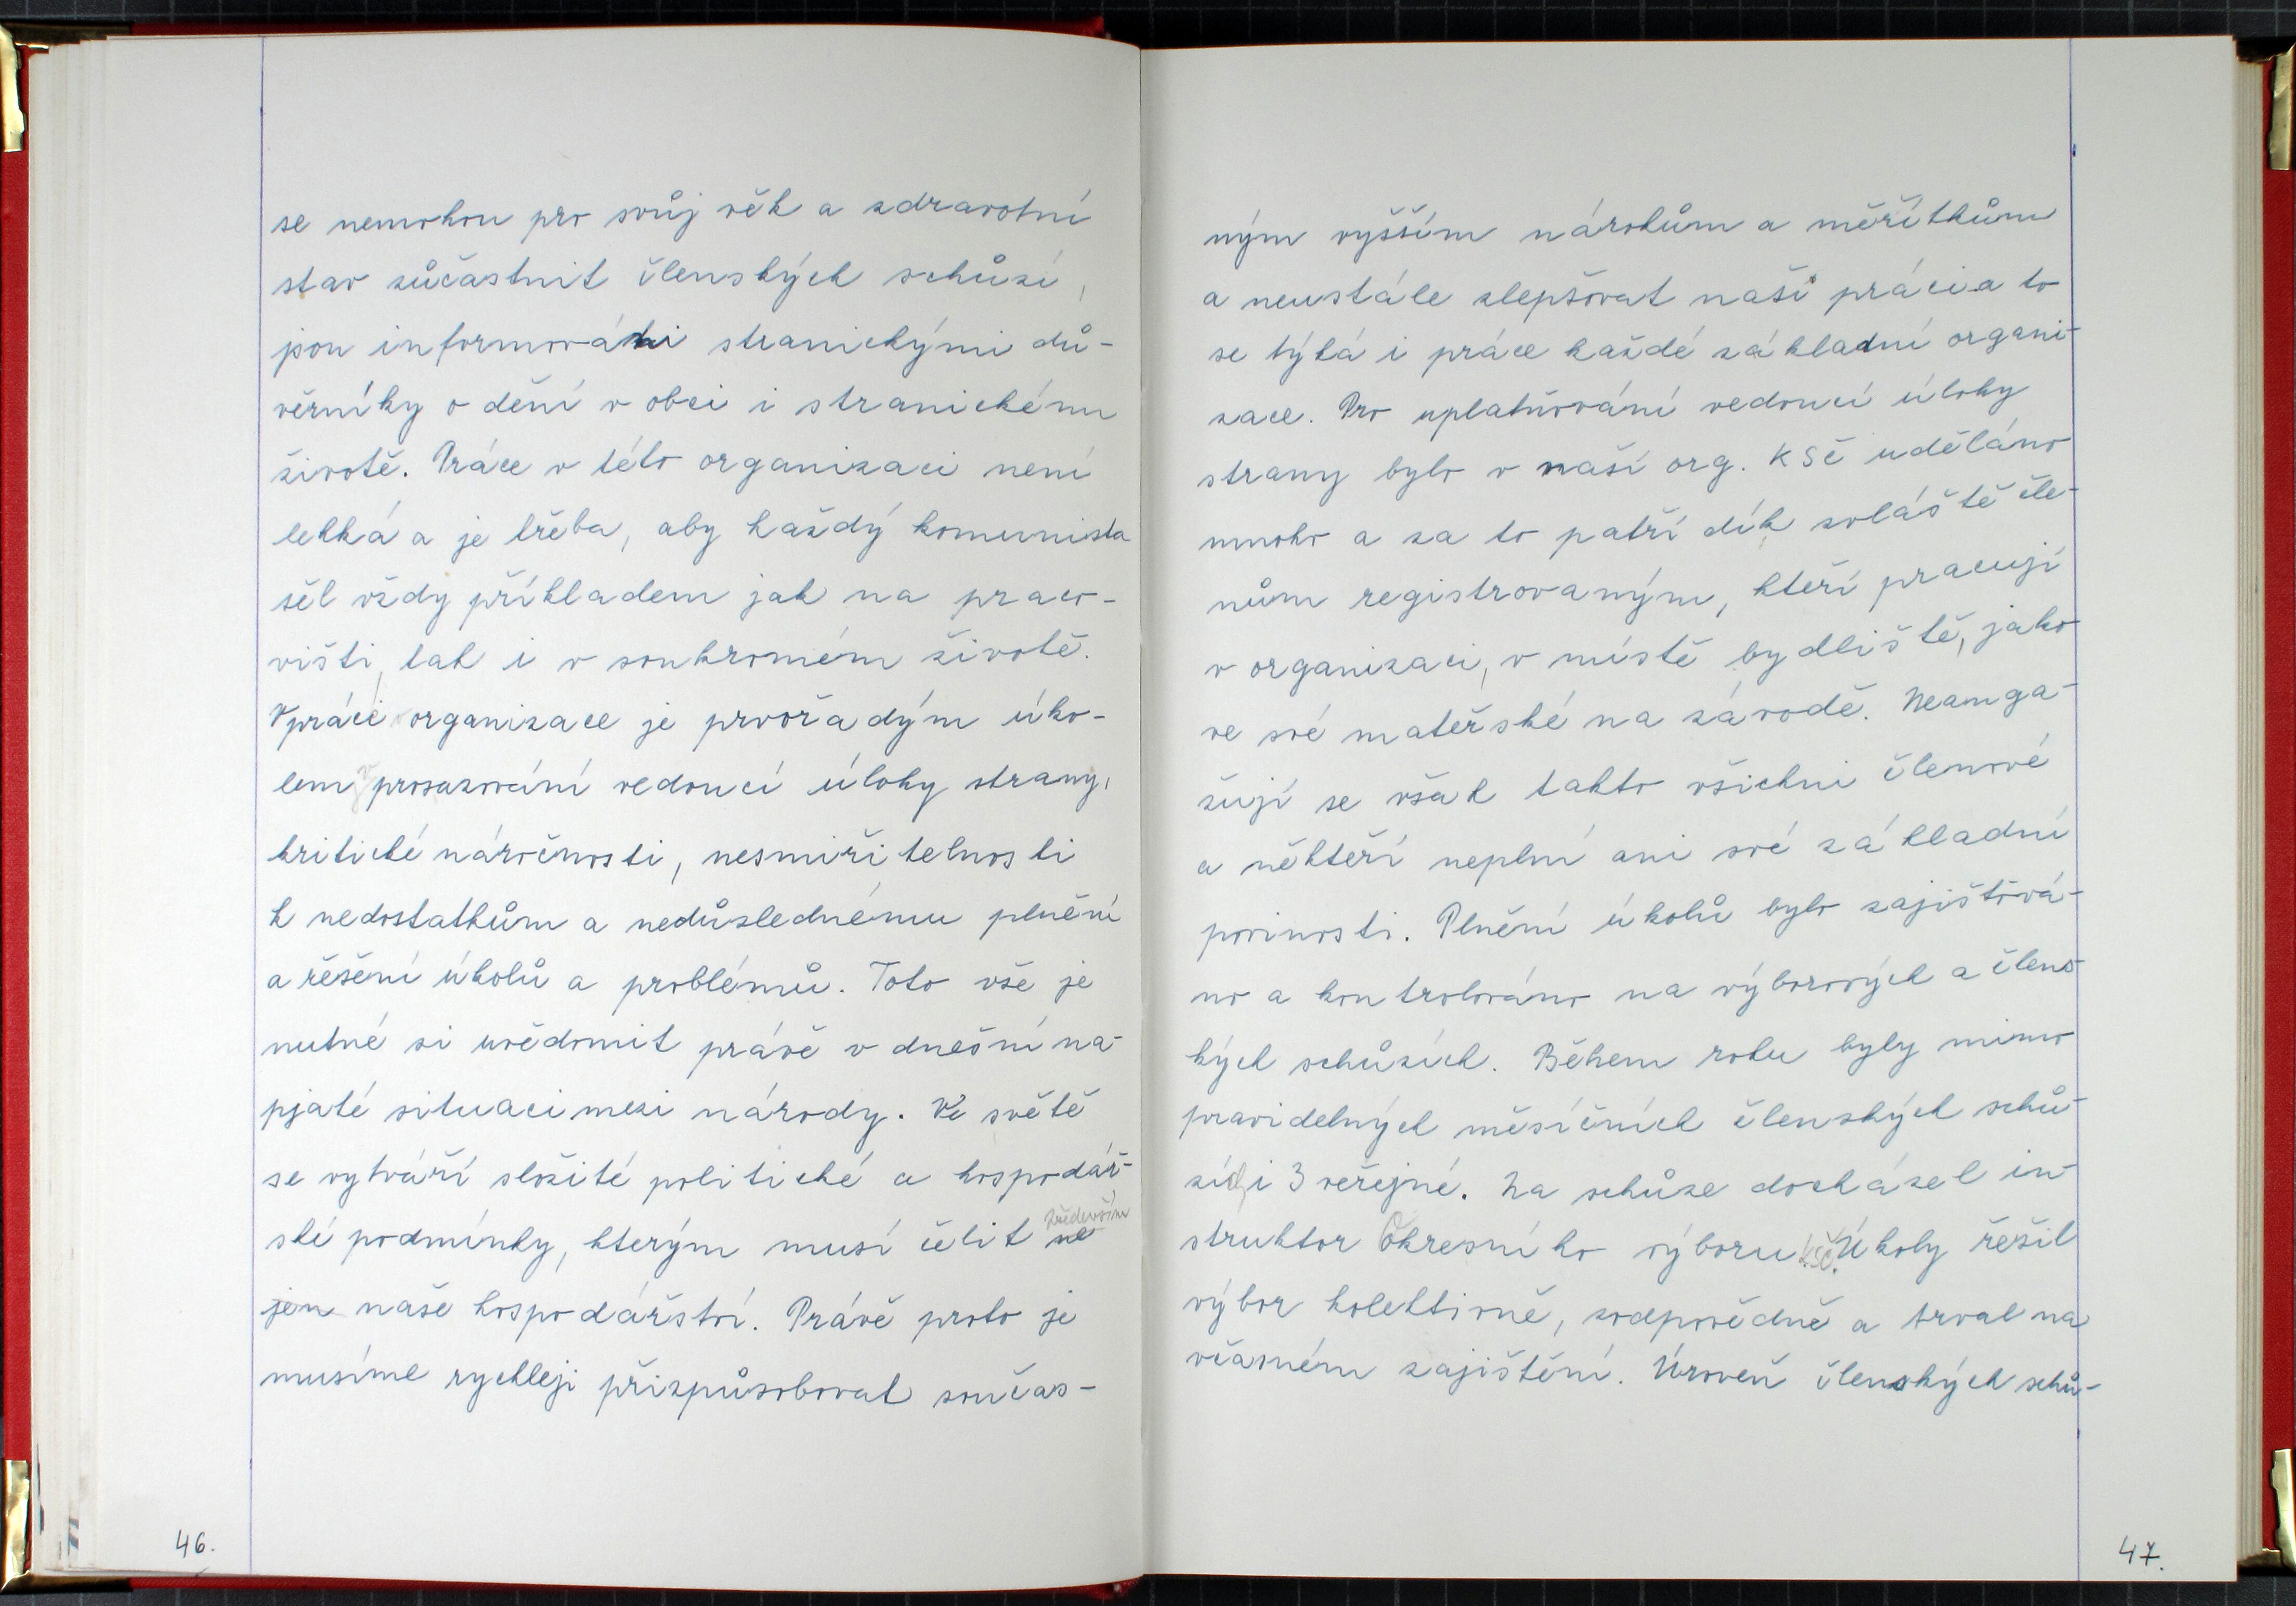 se nemohou pro svůj věk a zdravotní
stav zúčastnit členských schůzí,
jsou informováni stranickými dů-
věrníky o dění v obci i stranickému
životě. Práce v této organizaci není
lehká a je třeba, aby každý komunista
šel vždy příkladem jak na praco-
višti, tak i v soukromém životě.
V práci organizace je prvořadým úko-
lem prosazování vedoucí úlohy strany,
kritické náročnosti, nesmiřitelnosti
k nedostatkům a nedůslednému plnění
a řešení úkolů a problémů. Toto vše je
nutné si uvědomit právě v dnešní na-
pjaté situaci mezi národy. Ve světě
se vytváří složité politické a hospodář-
především
ské podmínky, kterým musí čelit ne
jen naše hospodářství. Právě proto je
musíme rychleji přizpůsobovat součas-
46.
ným vyšším nárokům a měřítkům
a neustále zlepšovat naši práci a to
se týká i práce každé základní organi-
zace. Pro uplatňování vedoucí úlohy
strany bylo v naší org. KSČ uděláno
mnoho a za to patří dík zvláště čle-
nům registrovaným, kteří pracují
v organizaci, v místě bydliště, jako
ve své mateřské na závodě. Neanga-
žují se však takto všichni členové
a někteří neplní ani své základní
povinosti. Plnění úkolů bylo zajišťová-
no a kontrolováno na výborových a člens-
kých schůzích. Během roku byly mimo
pravidelných měsíčních členských schů-
zích i 3 veřejné. Na schůze docházel in-
struktor Okresního výboru KSČ. Úkoly řešil
výbor kolektivně, zodpovědně a trval na
včasném zajištění. Úroveň členských schů-
47.